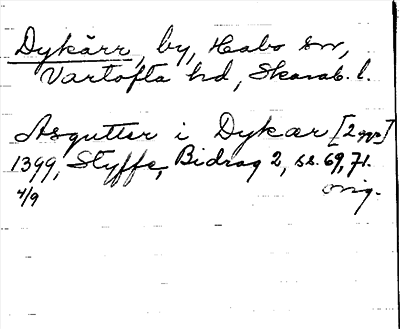 Dykärr, by, Habo sn,
Vartofta hd, Skarab. l.
Asgutter i Dykær [2 ggr]
1399, Styffe, Bidrag 2, ss. 69, 71.
4/9 orig.